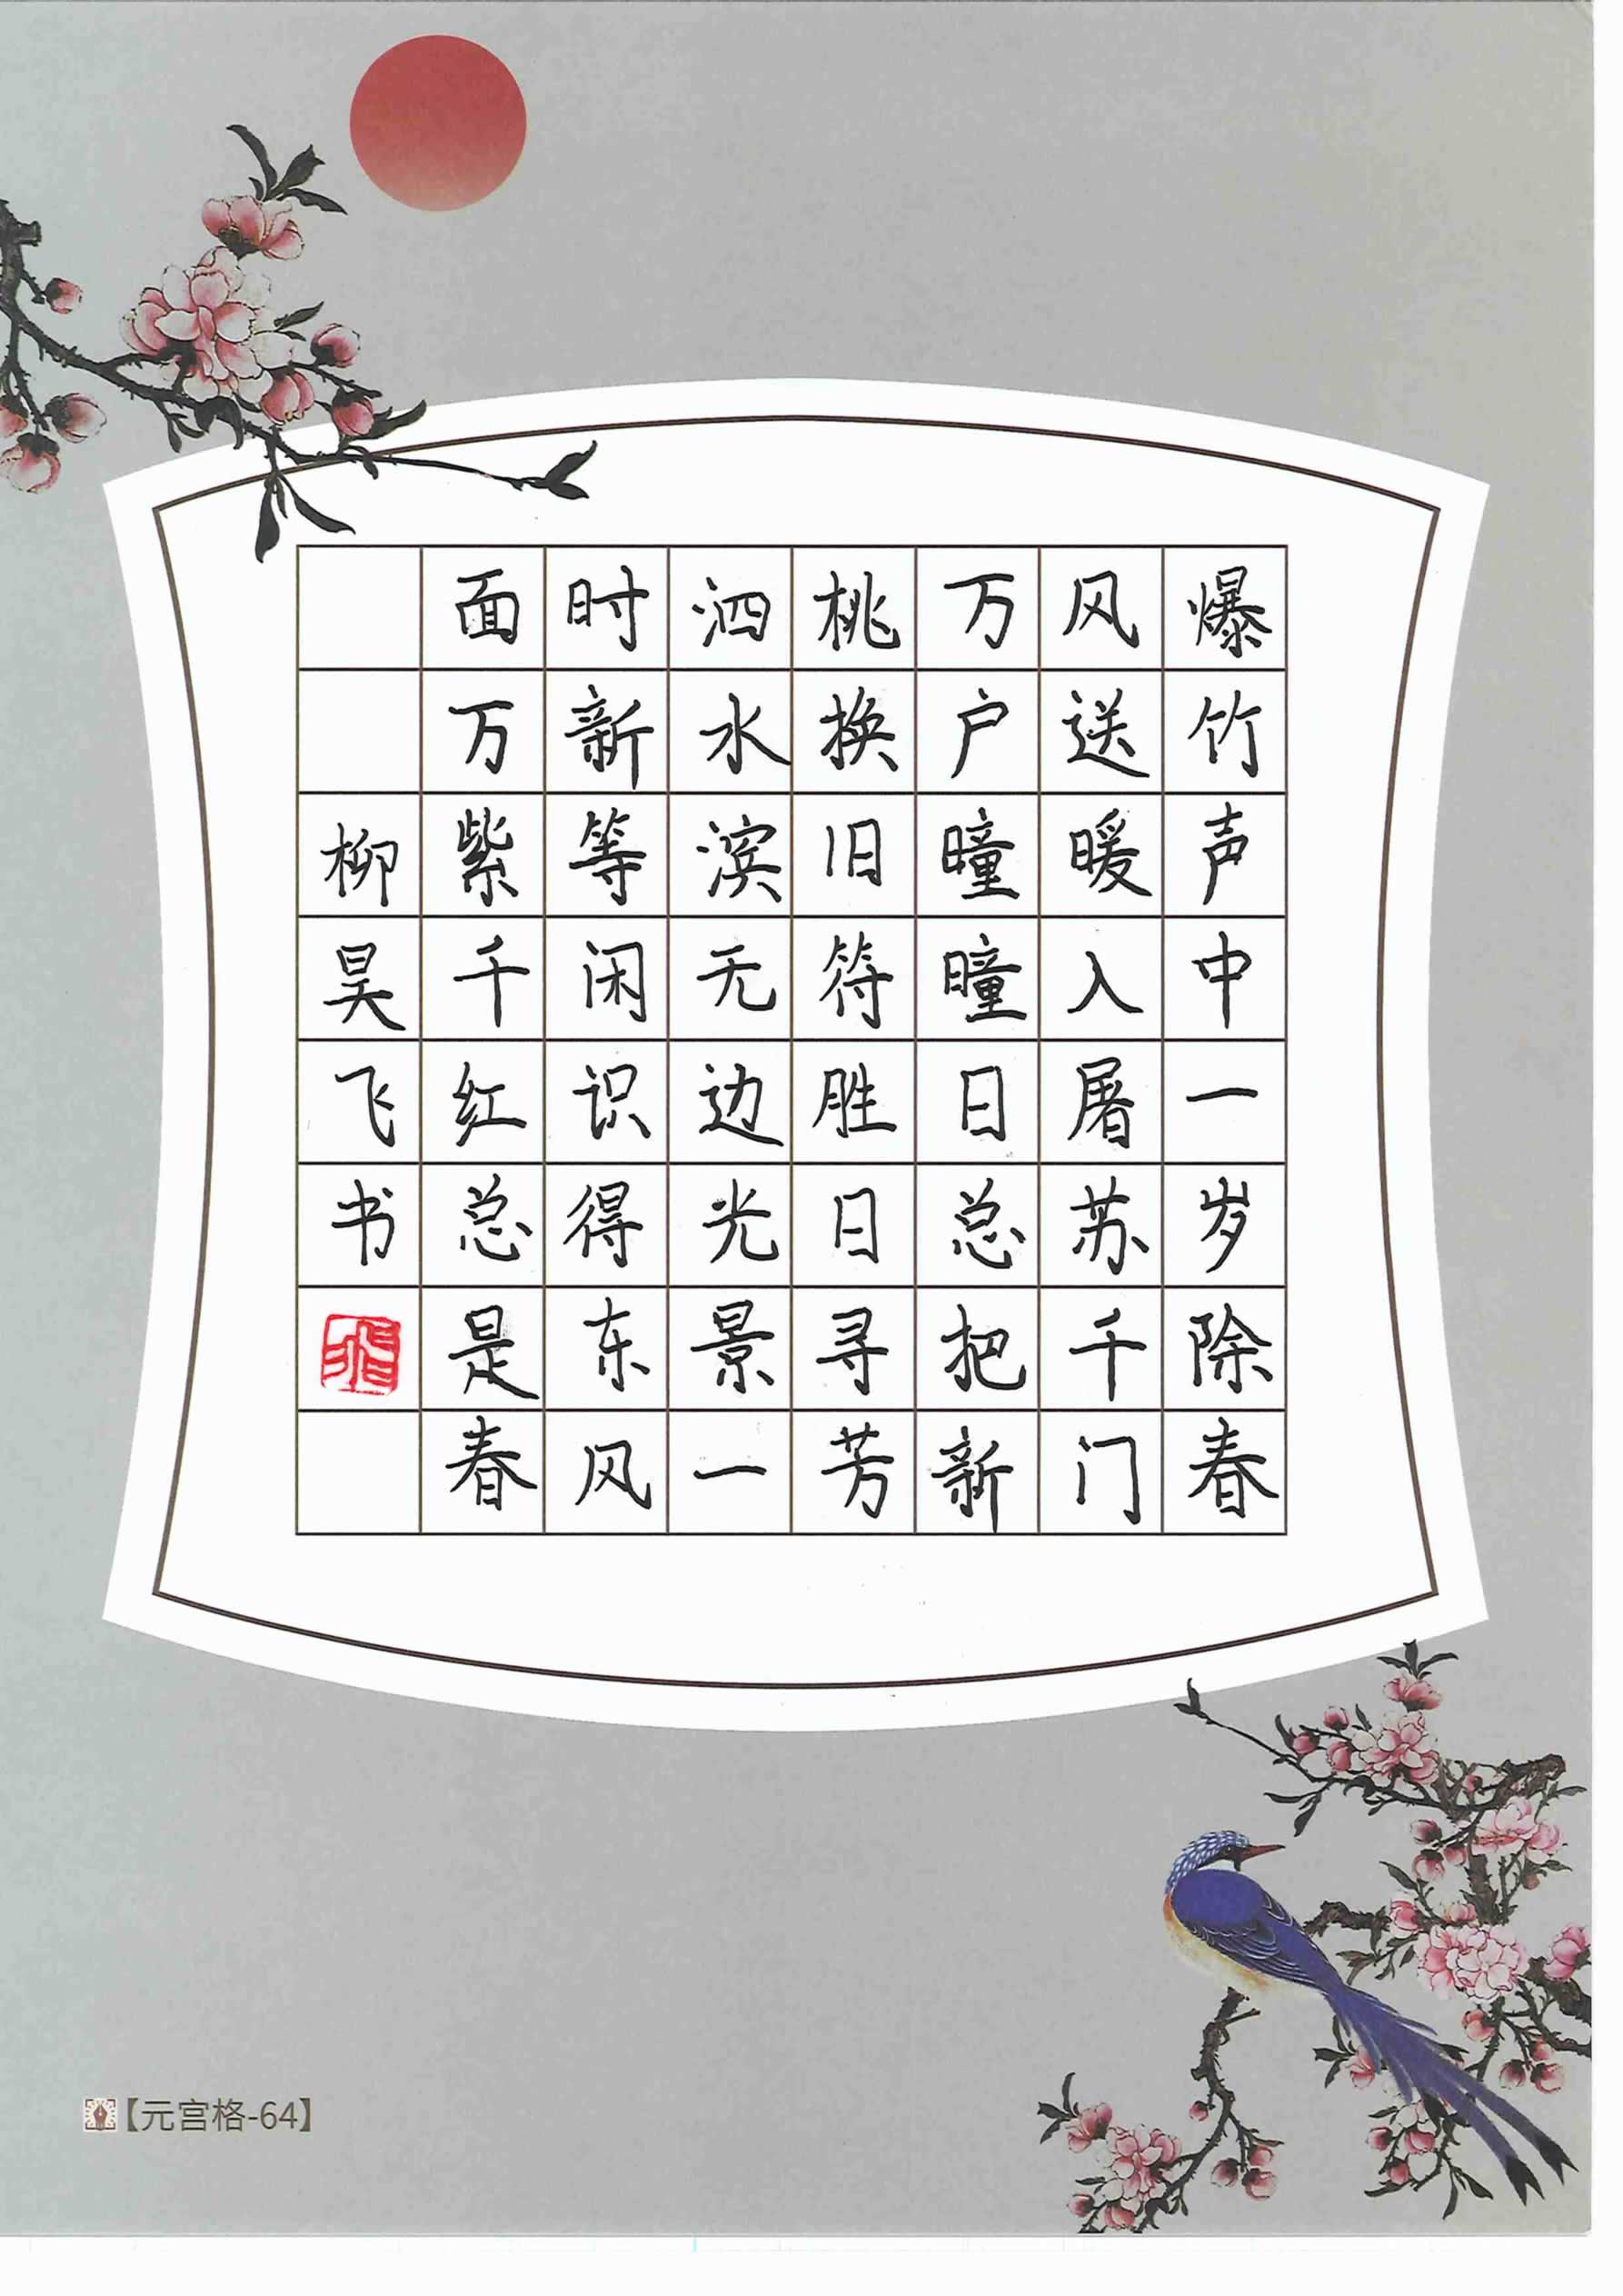 爆竹声中一岁除春
风送暖入屠苏千门
万户曈曈日总把新
桃换旧符胜日寻芳
泗水滨无边光景一
时新等闲识得东风
面万紫千红总是春
柳昊飞书
【元宫格-64】